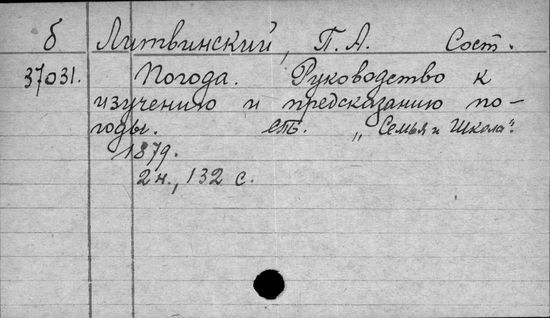 б Литвинский, П.А. Сост.
37031. Погода. Руководство к
изучению и предсказанию по-
годы. „Семья и Школа".
1879.
2н., 132 с.